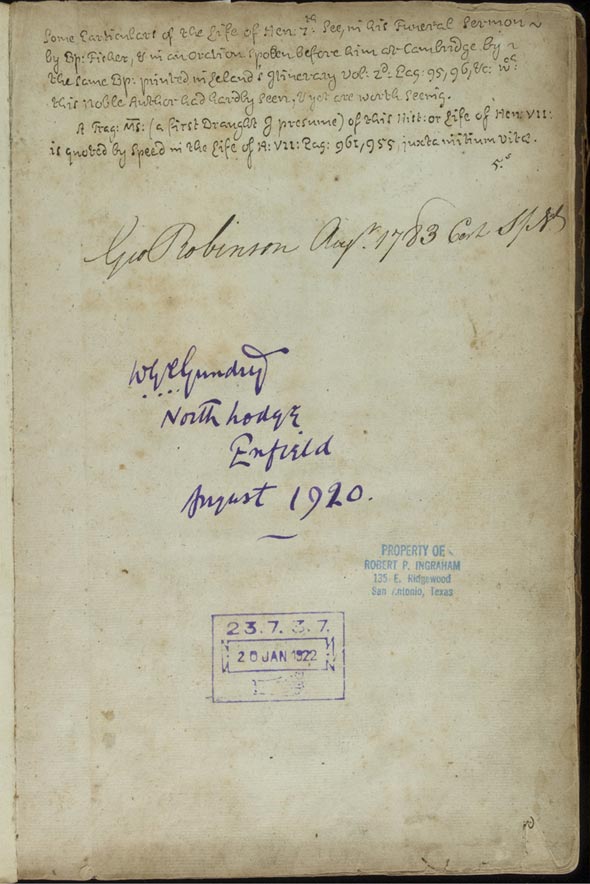 Some Particulars of the Life of Hen: 7.th See, in his Funeral Sermon
by Bp: Fisher, & in an Oration spoken before him at Cambridge by
the same Bp: printed in Leland's Itinerary Vol: 2.d Pag: 95, 96, &c: w.ch
this Noble Author had hardly seen, & yet are worth seeing.
A Frag: MS: (a first Draught I presume) of this Hist: or Life of Hen: VII:
is quoted by Speed in the Life of H: VII: Pag: 961, 955, juxta initium vitæ.
Geo Robinson Aug.st 1783
Gundry
North Lodge
Enfield
August 1920.
PROPERTY OF
ROBERT P. INGRAHAM
135 E. Ridgewood
San Antonio, Texas
23.7.37.
20 JAN 1922